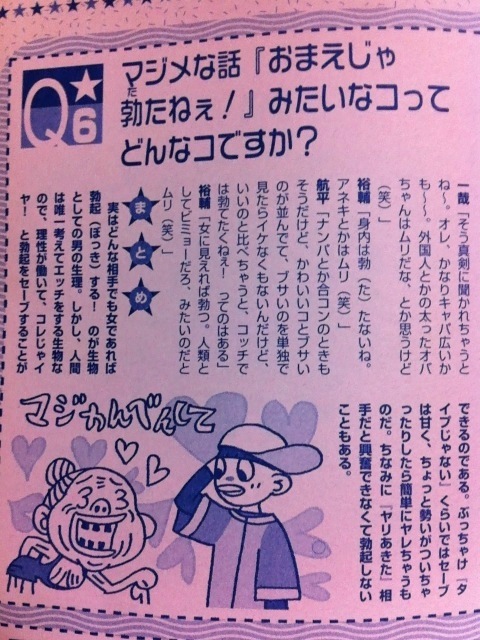 Q6
マジメな話『おまえじゃ
勃たねぇ！』みたいなコって
どんなコですか？
一哉「そう真剣に聞かれちゃうと
ね～。オレ、かなりキャパ広いか
も～～。外国人とかの太ったオバ
ちゃんはムリだな、とか思うけど
（笑）」
裕輔「身内は勃（た）たないね。
アネキとかはムリ（笑）」
航平「ナンパとか合コンのときも
そうだけど、かわいいコとブサい
のが並んでて、ブサいのを単独で
見たらイケなくもないんだけど、
いいのと比べちゃうと、コッチで
は勃てたくねぇ！　ってのはある」
裕輔「女に見えれば勃つ。人類と
してビミョーだろ、みたいのだと
ムリ（笑）」
まとめ
実はどんな相手でも女であれば
勃起（ぼっき）する！　のが生物
としての男の生理。しかし、人間
は唯一考えてエッチをする生物な
ので、理性が働いて、コレじゃイ
ヤ！　と勃起をセーブすることが
できるのである。ぶっちゃけ「タ
イプじゃない」くらいではセーブ
は甘く、ちょっと勢いがついちゃ
ったりしたら簡単にヤレちゃうも
のだ。ちなみに『ヤリあきた』相
手だと興奮できなくて勃起しない
こともある。
マジかんべんして